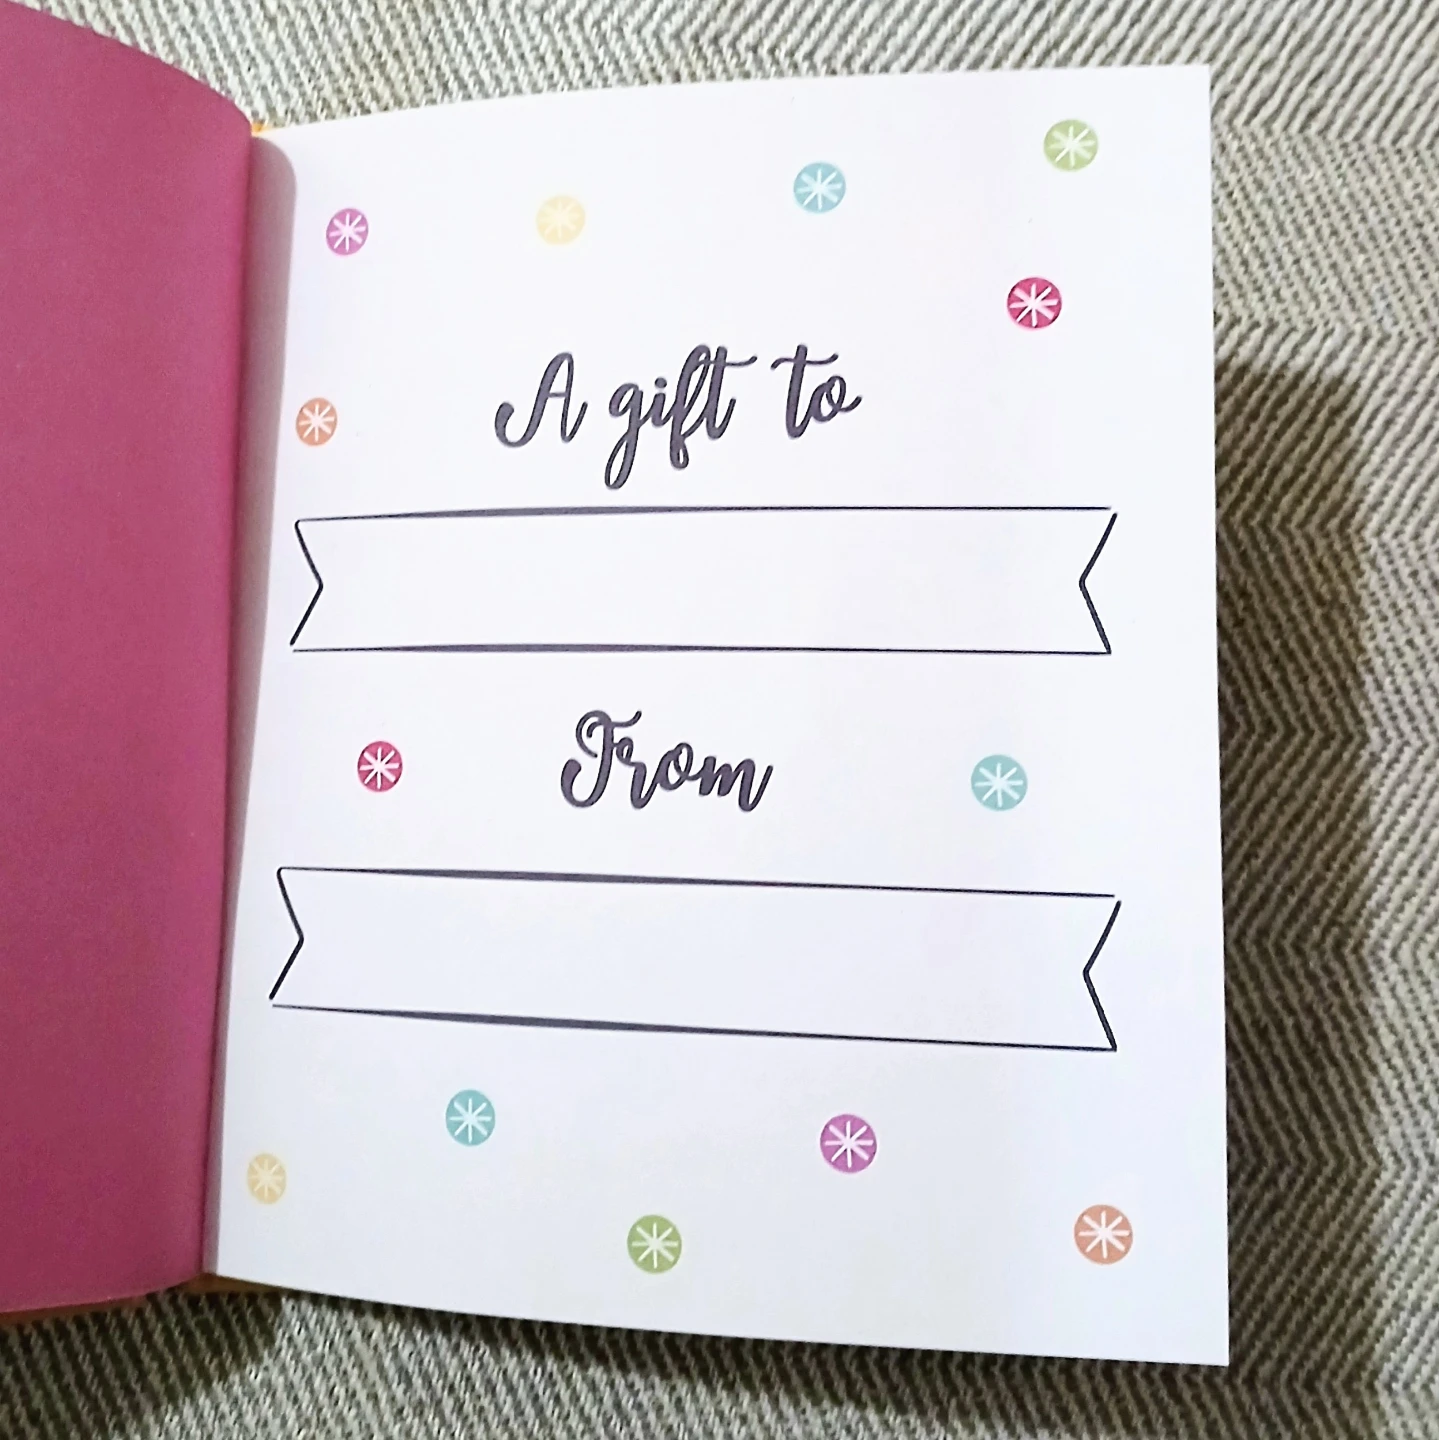 A gift to
From